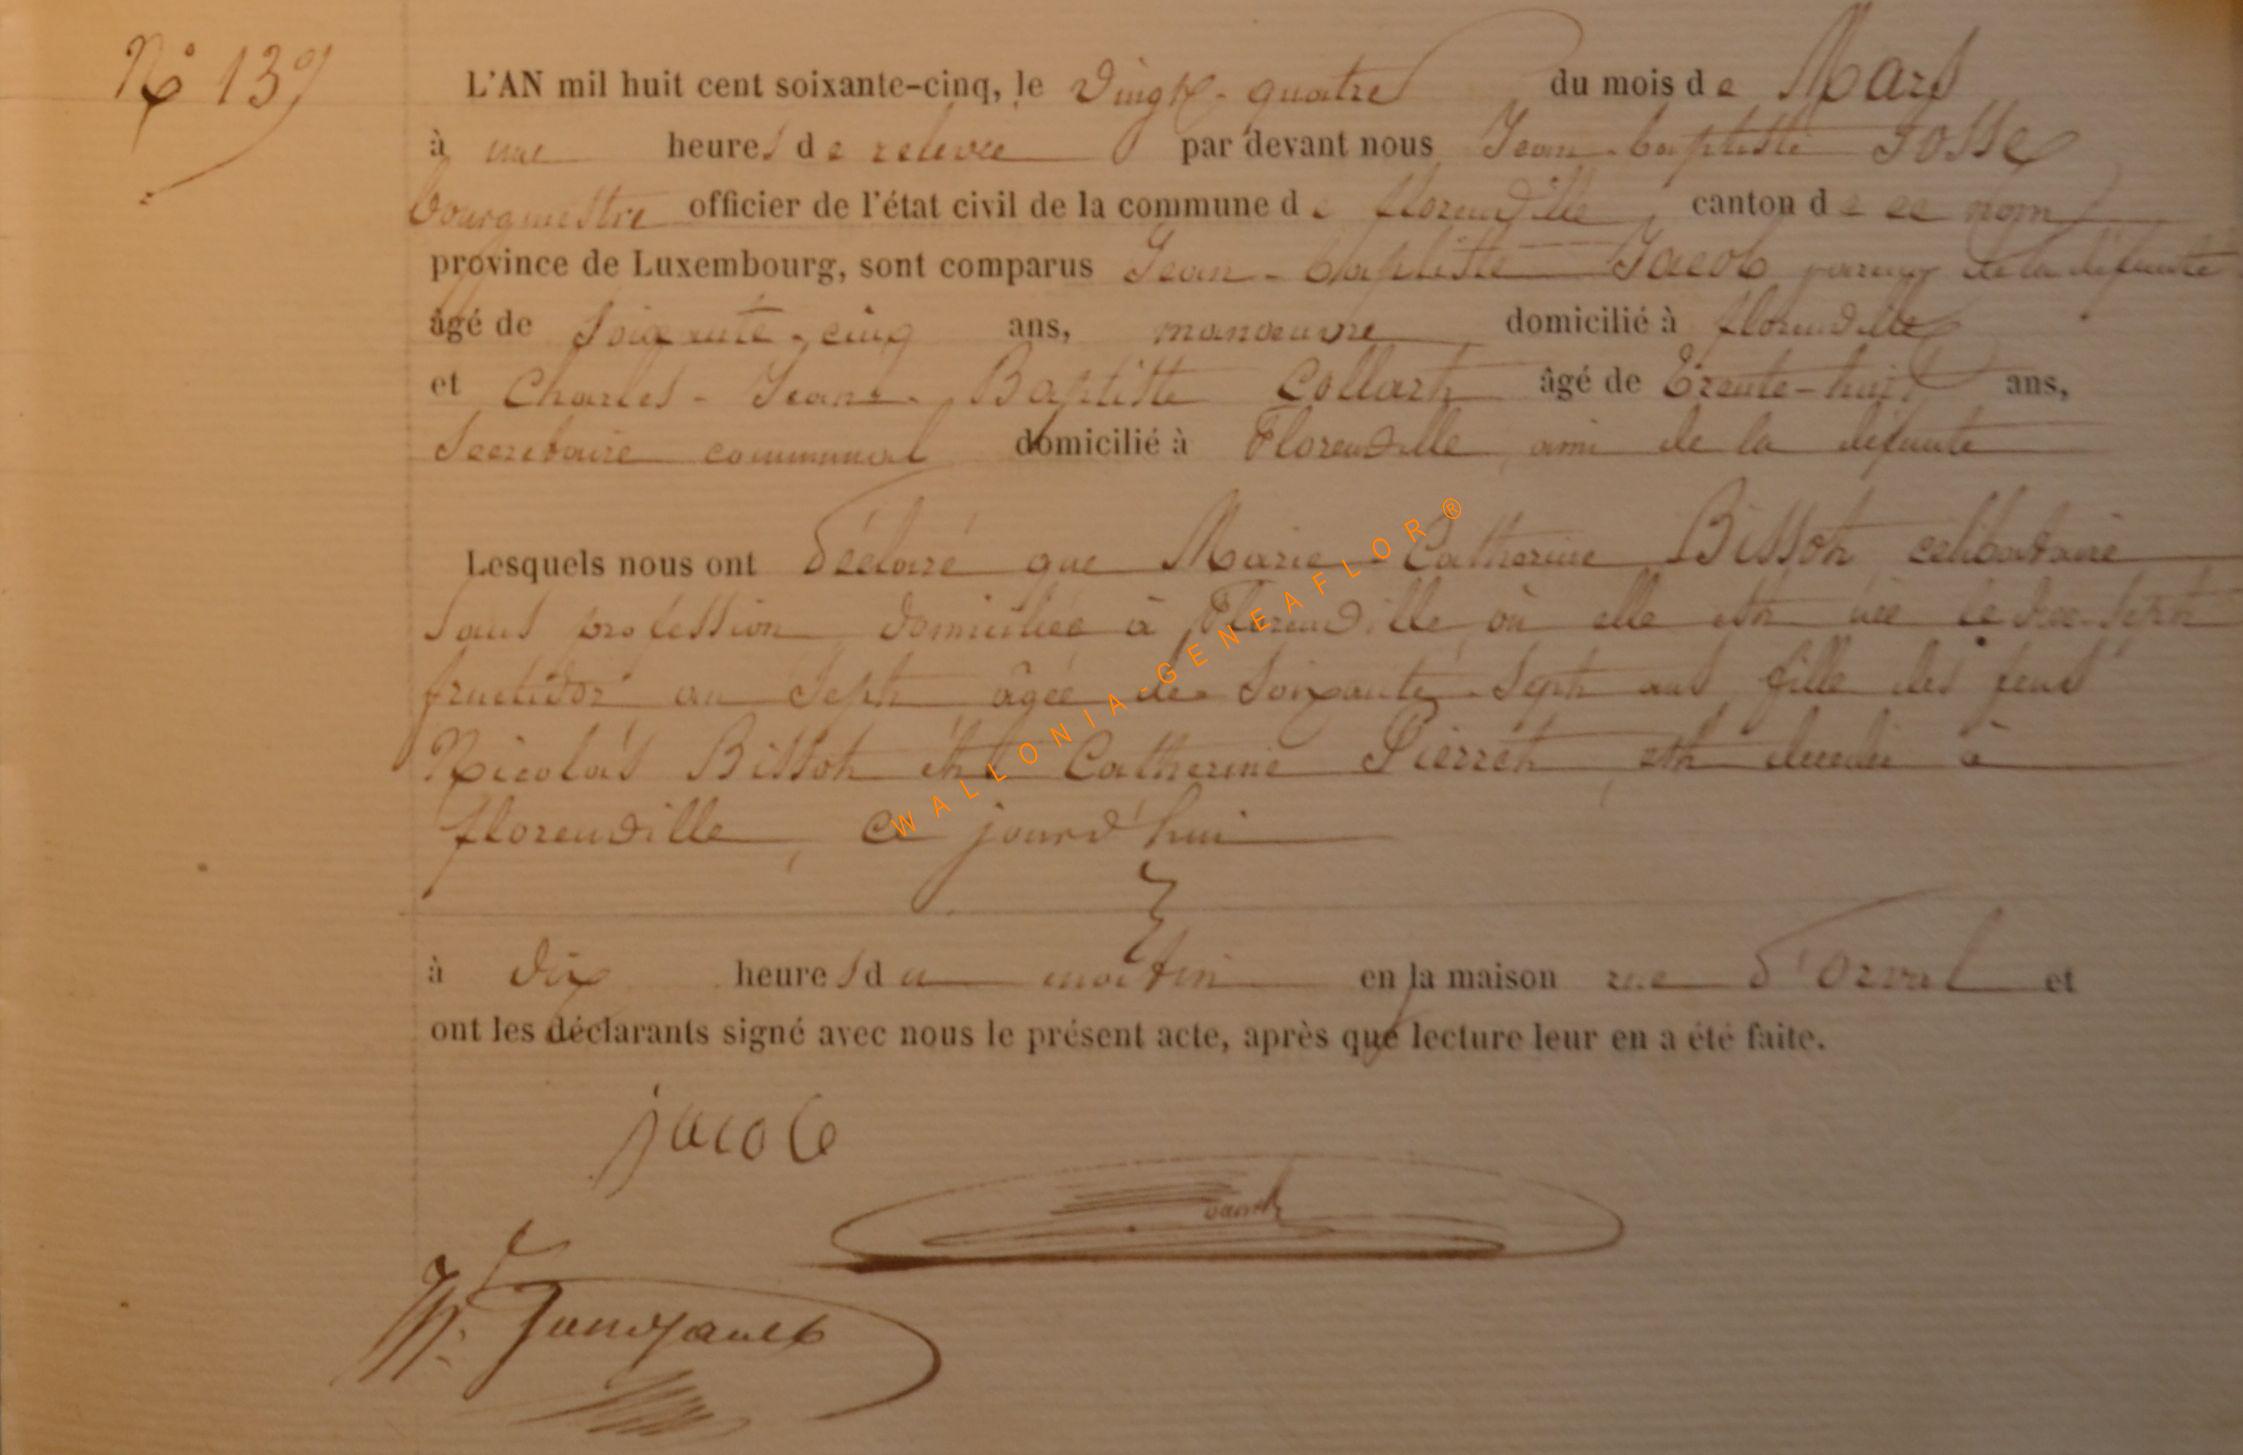 N° 139
L'AN mil huit cent soixante-cinq, le vingt-quatre du mois de Mars
à une heures de relevée par devant nous Jean-baptiste Fosse
bourgmestre officier de l'état civil de la commune de florenville, canton de ce nom
province de Luxembourg, sont comparus Jean-baptiste Jacob parent de la défunte
âgé de soixante-cinq ans, manœuvre domicilié à florenville
et Charles-Jean-Baptiste Collart âgé de trente-huit ans,
secretaire communal domicilié à Florenville, ami de la défunte
Lesquels nous ont déclaré que Marie-Catherine Bissot, celibataire
sans profession domiciliée à Florenville, où elle est née le dix-sept
fructidor an sept âgée de soixante-sept ans fille des feus
Nicolas Bissot et Catherine Pierret est decedée à
florenville, ce jourd'hui
à dix heures du matin en la maison rue d'Orval et
ont les déclarants signé avec nous le présent acte, après que lecture leur en a été faite.
jacob
WALLONIA-GENEAFLOR®